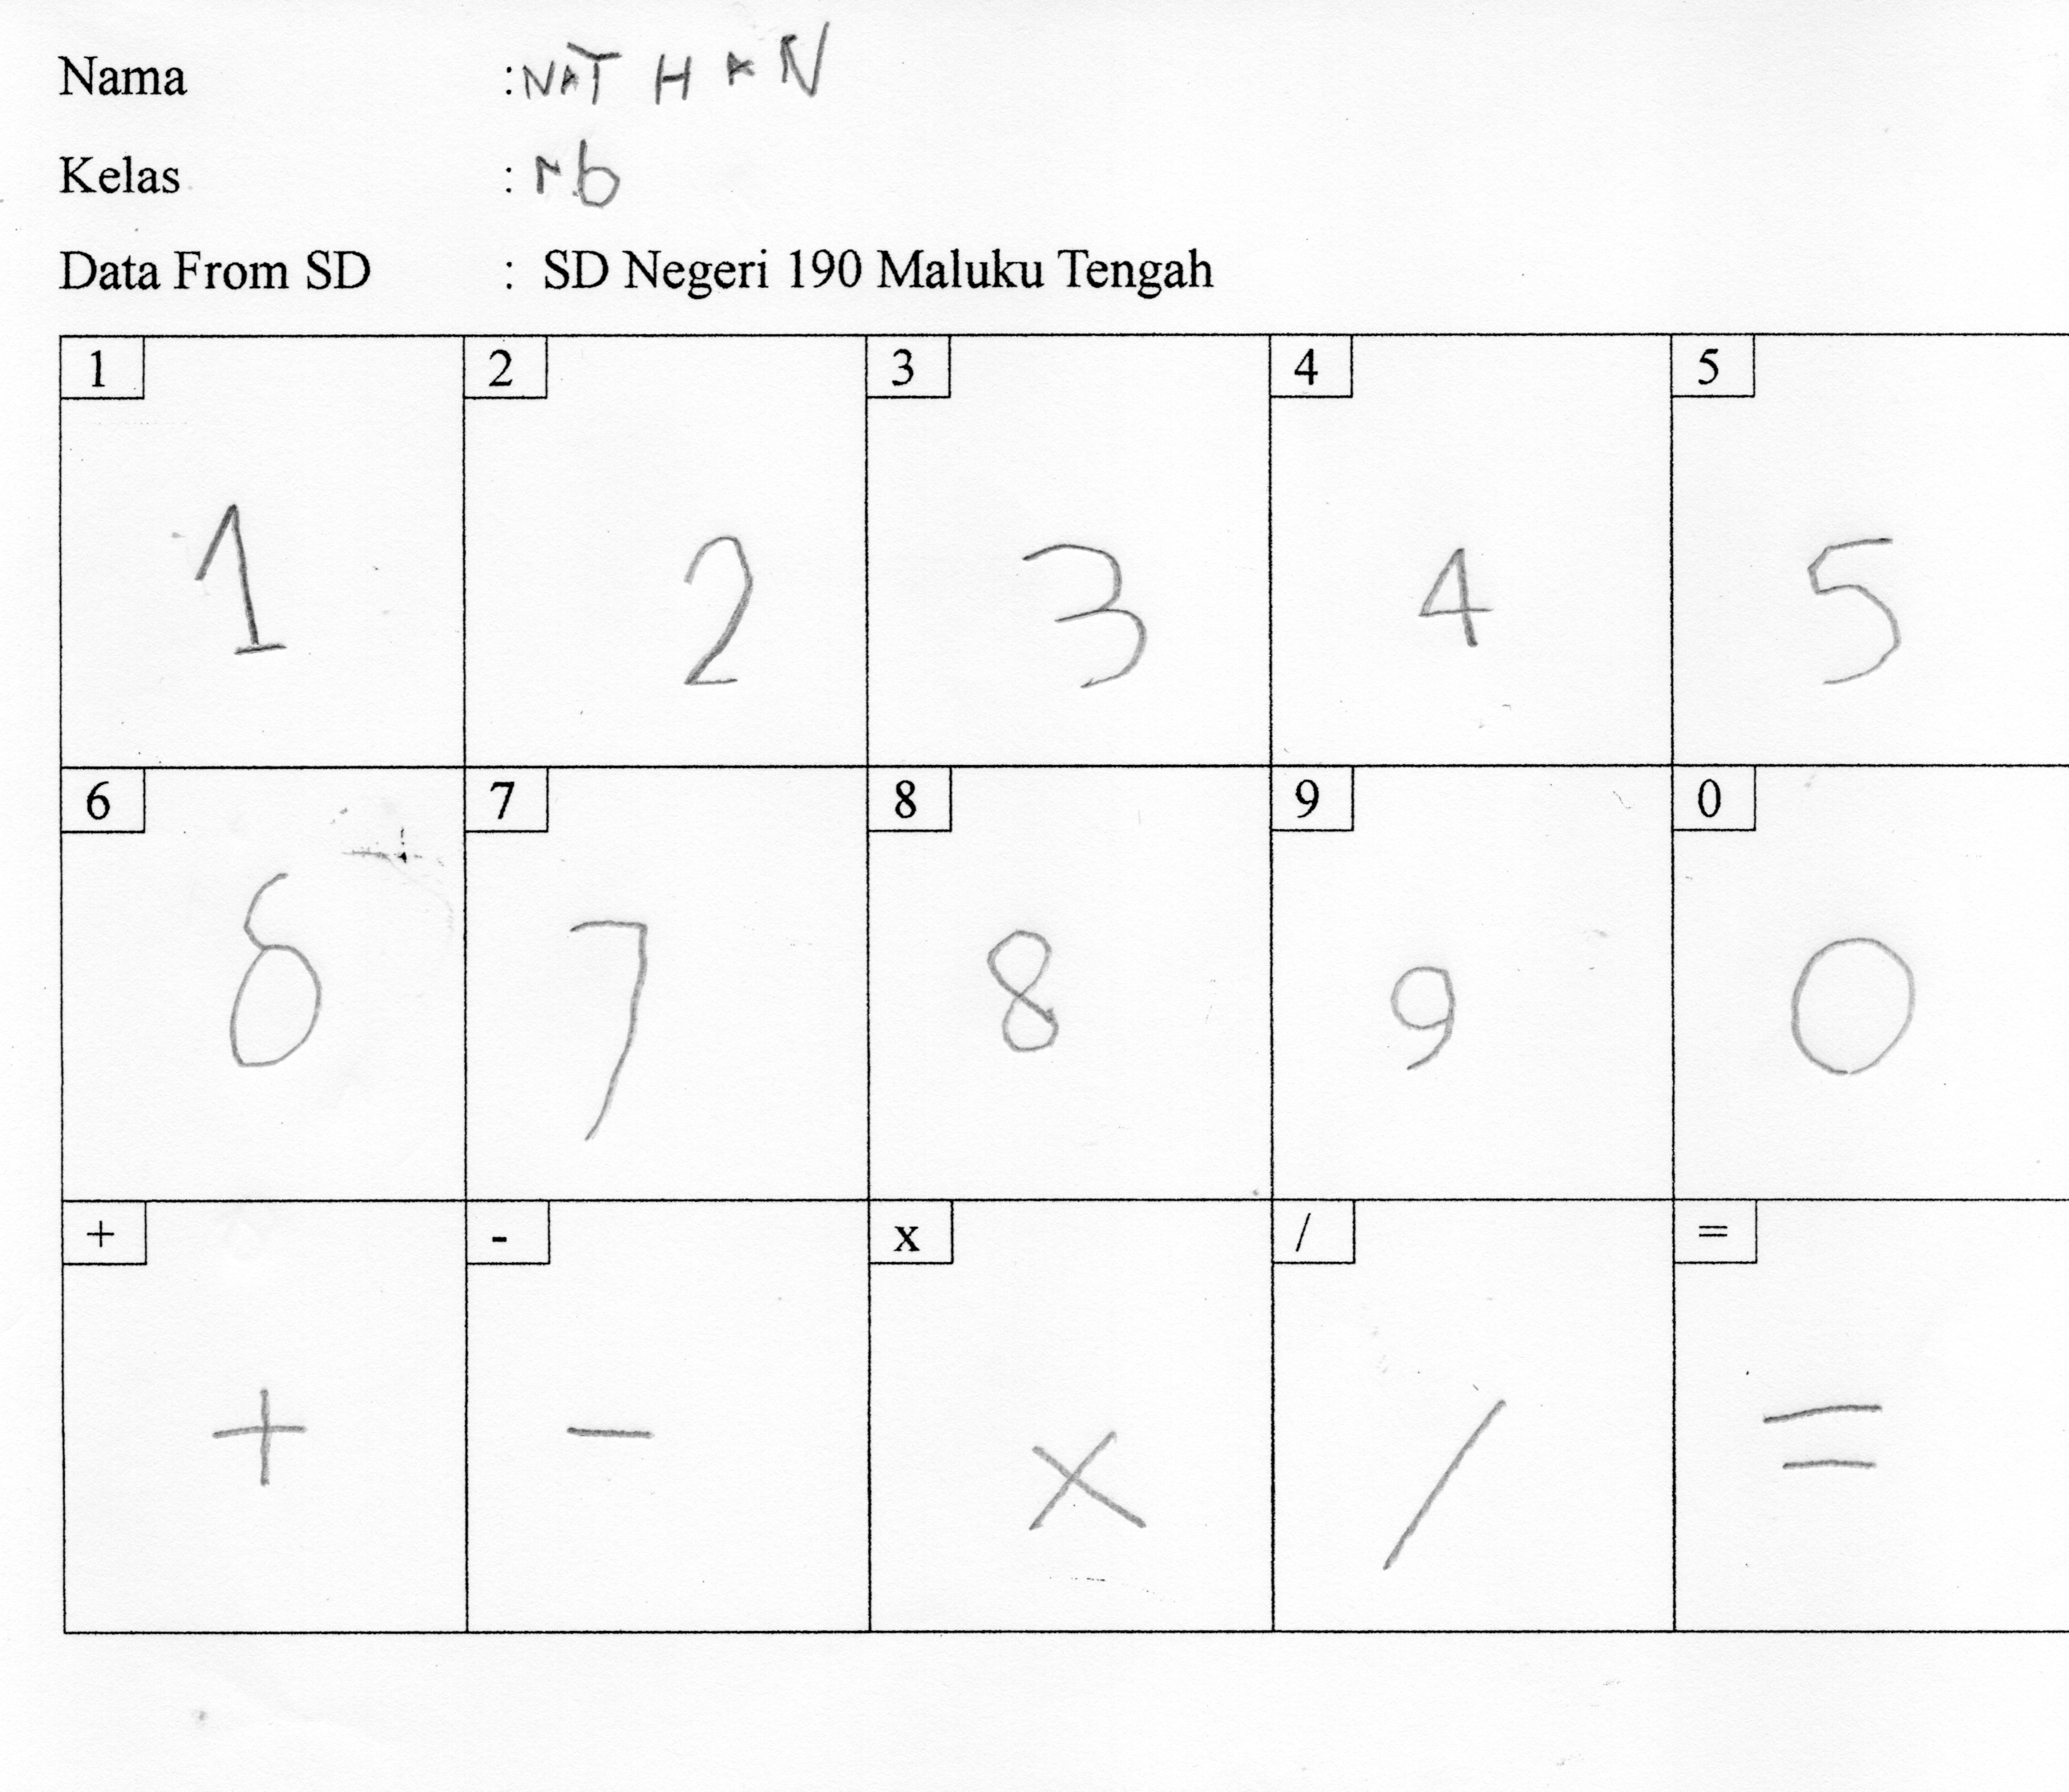 Nama : NATHAN
Kelas : 1b
Data From SD : SD Negeri 190 Maluku Tengah
1 2 3 4 5
1 2 3 4 5
6 7 8 9 0
6 7 8 9 0
+ - x / =
+ - x / =